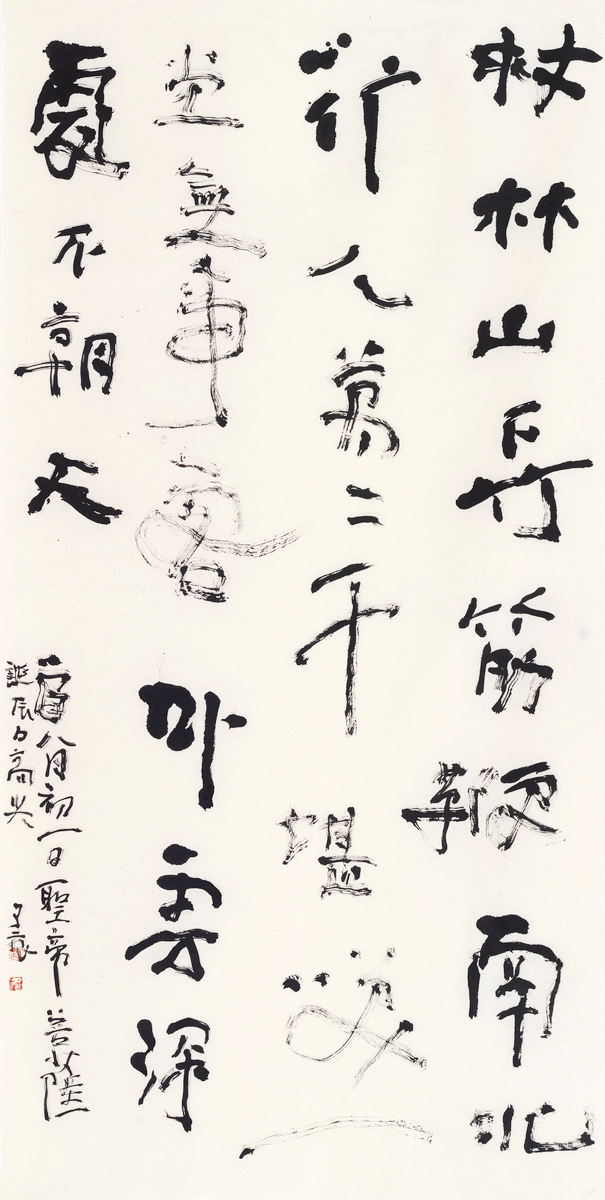 杖林山下竹筋鞭南北
行人萬二千堪笑一
生無事客臥雲深
處不朝天
八月初一日聖帝菩薩
誕辰日高